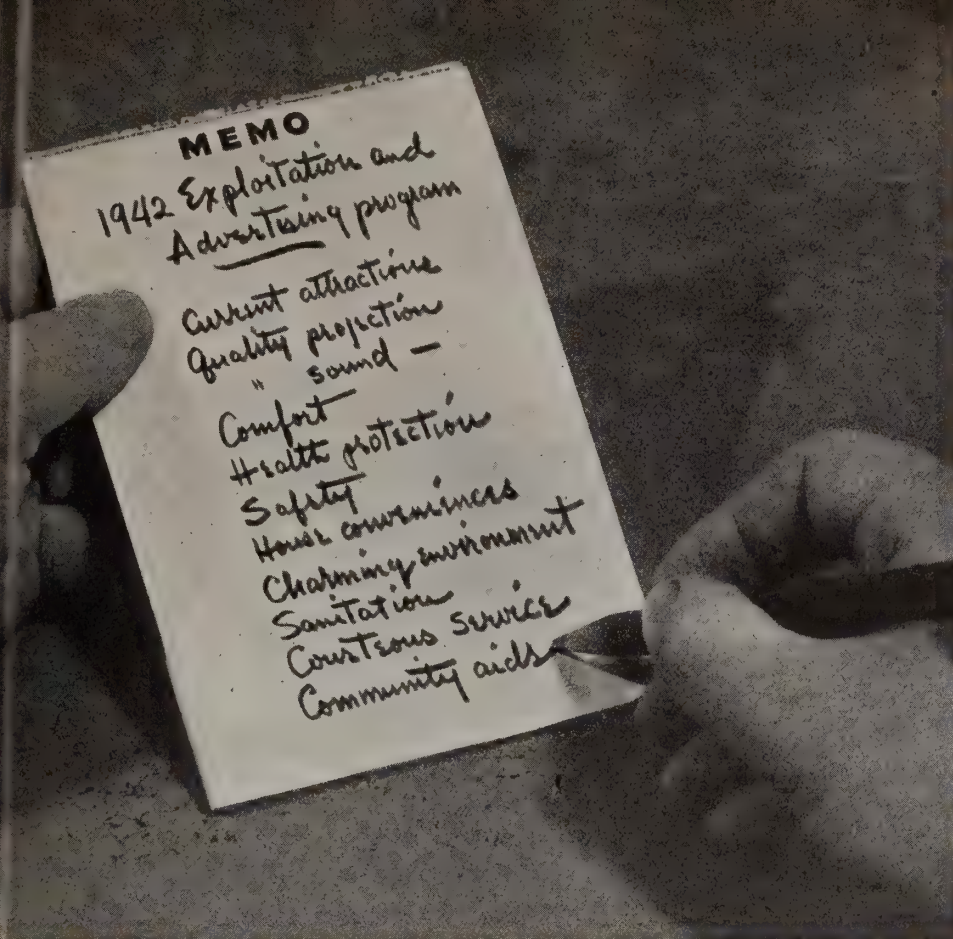 MEMO
1942 Exploitation and
Advertising program
Current attractions
Quality projection
" sound —
Comfort
Health protection
Safety
House conveniences
Charming environment
Sanitation
Courteous service
Community aids